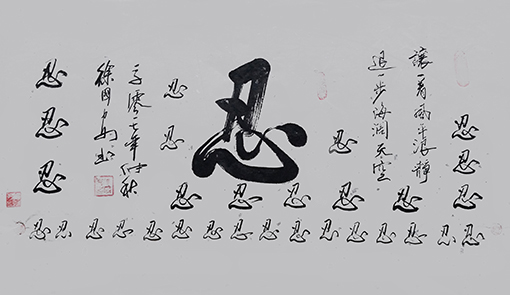 讓一着風平浪靜
退一步海阔天空
忍
忍
忍
忍
忍
忍
忍
零 七年仲秋
徐国
忍
忍
忍
忍忍忍忍忍
忍忍忍忍忍忍忍忍忍忍忍忍忍忍忍忍